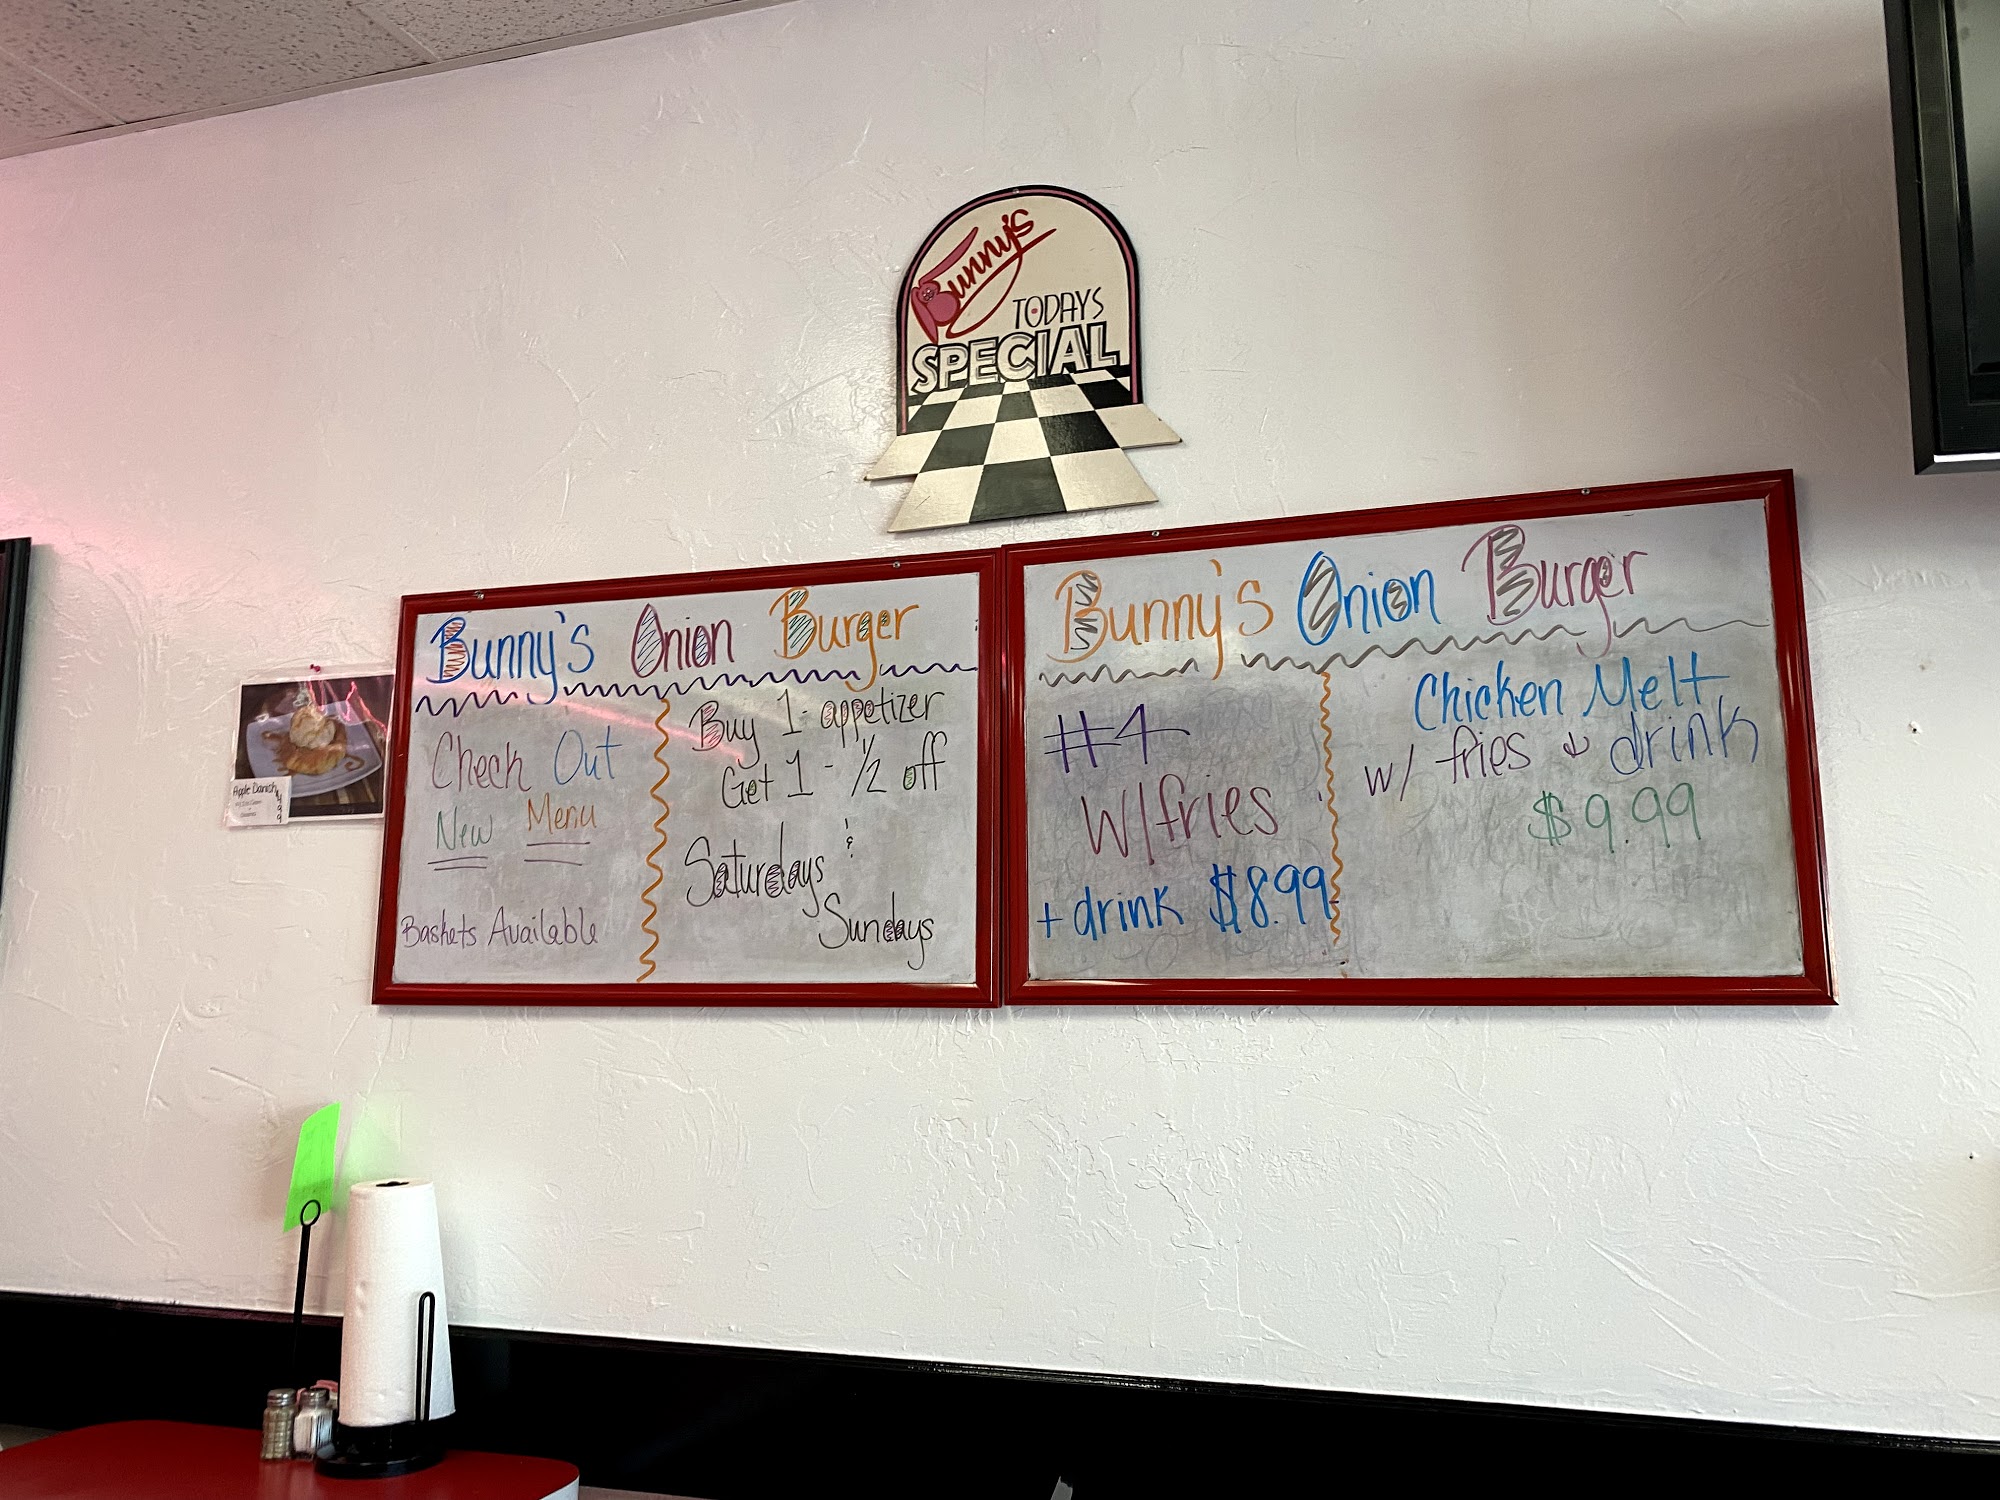 Bunny's
TODAYS
SPECIAL
Bunny's Onion Burger
Check Out
New Menu
Baskets Available
Buy 1 - appetizer
Get 1 - 1/2 off
Saturdays &
Sundays
Bunny's Onion Burger
#4
W/fries
+ drink $8.99
Chicken Melt
w/ fries & drink
$9.99
Apple Danish